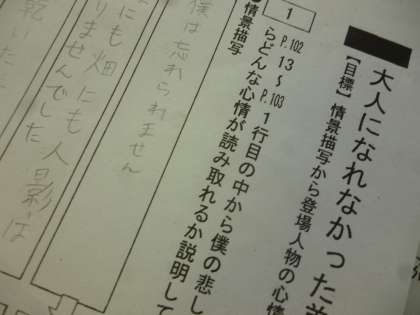 大人になれなかった
【目標】情景描写から登場人物の心情
1
P.102 13～P.103 1行目の中から僕の悲し
らどんな心情が読み取れるか説明して
情景描写
僕は忘れられません
にも畑にも人影は
りませんでした
乾いた